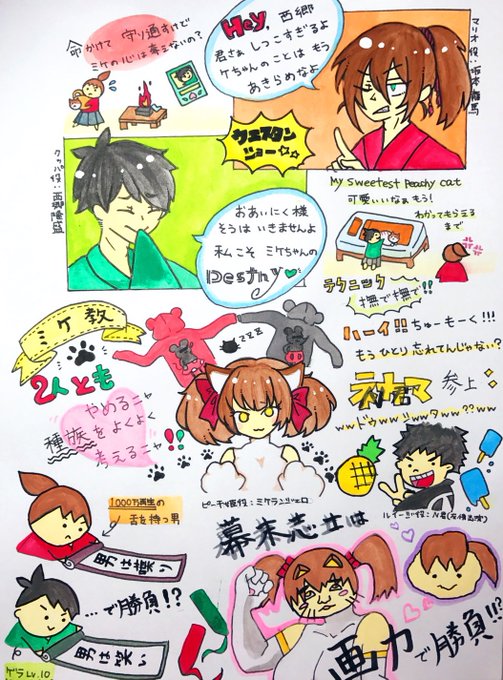 命かけて 守り通すけど
ミケの心は奪えないの?
Hey, 西郷
君さぁ しつこすぎるよ
ミケちゃんのことは もう
あきらめなよ
マリオ役:坂本龍馬
ウエスタン
ジョー☆☆
クッパ役:西郷隆盛
おあいにく様
そうは いきませんよ
私こそ ミケちゃんの
Destiny
My sweetest Peachy cat
可愛いいなぁ もう!
わかってもらえる
まで
テクニック
撫で撫で!!
ハーイ!!ちゅーもーく!!!
もう ひとり 忘れてんじゃない?
参上:
zzz
ミケ教
2人とも
やめるニャ
種族をよくよく
考えるニャ!!
ピーチ姫役:ミケランジェロ
1000万再生の
舌を持つ男
男は喋り
…で勝負!?
男は笑い
幕末志士は
画力で勝負!!?
ゲラLv.10